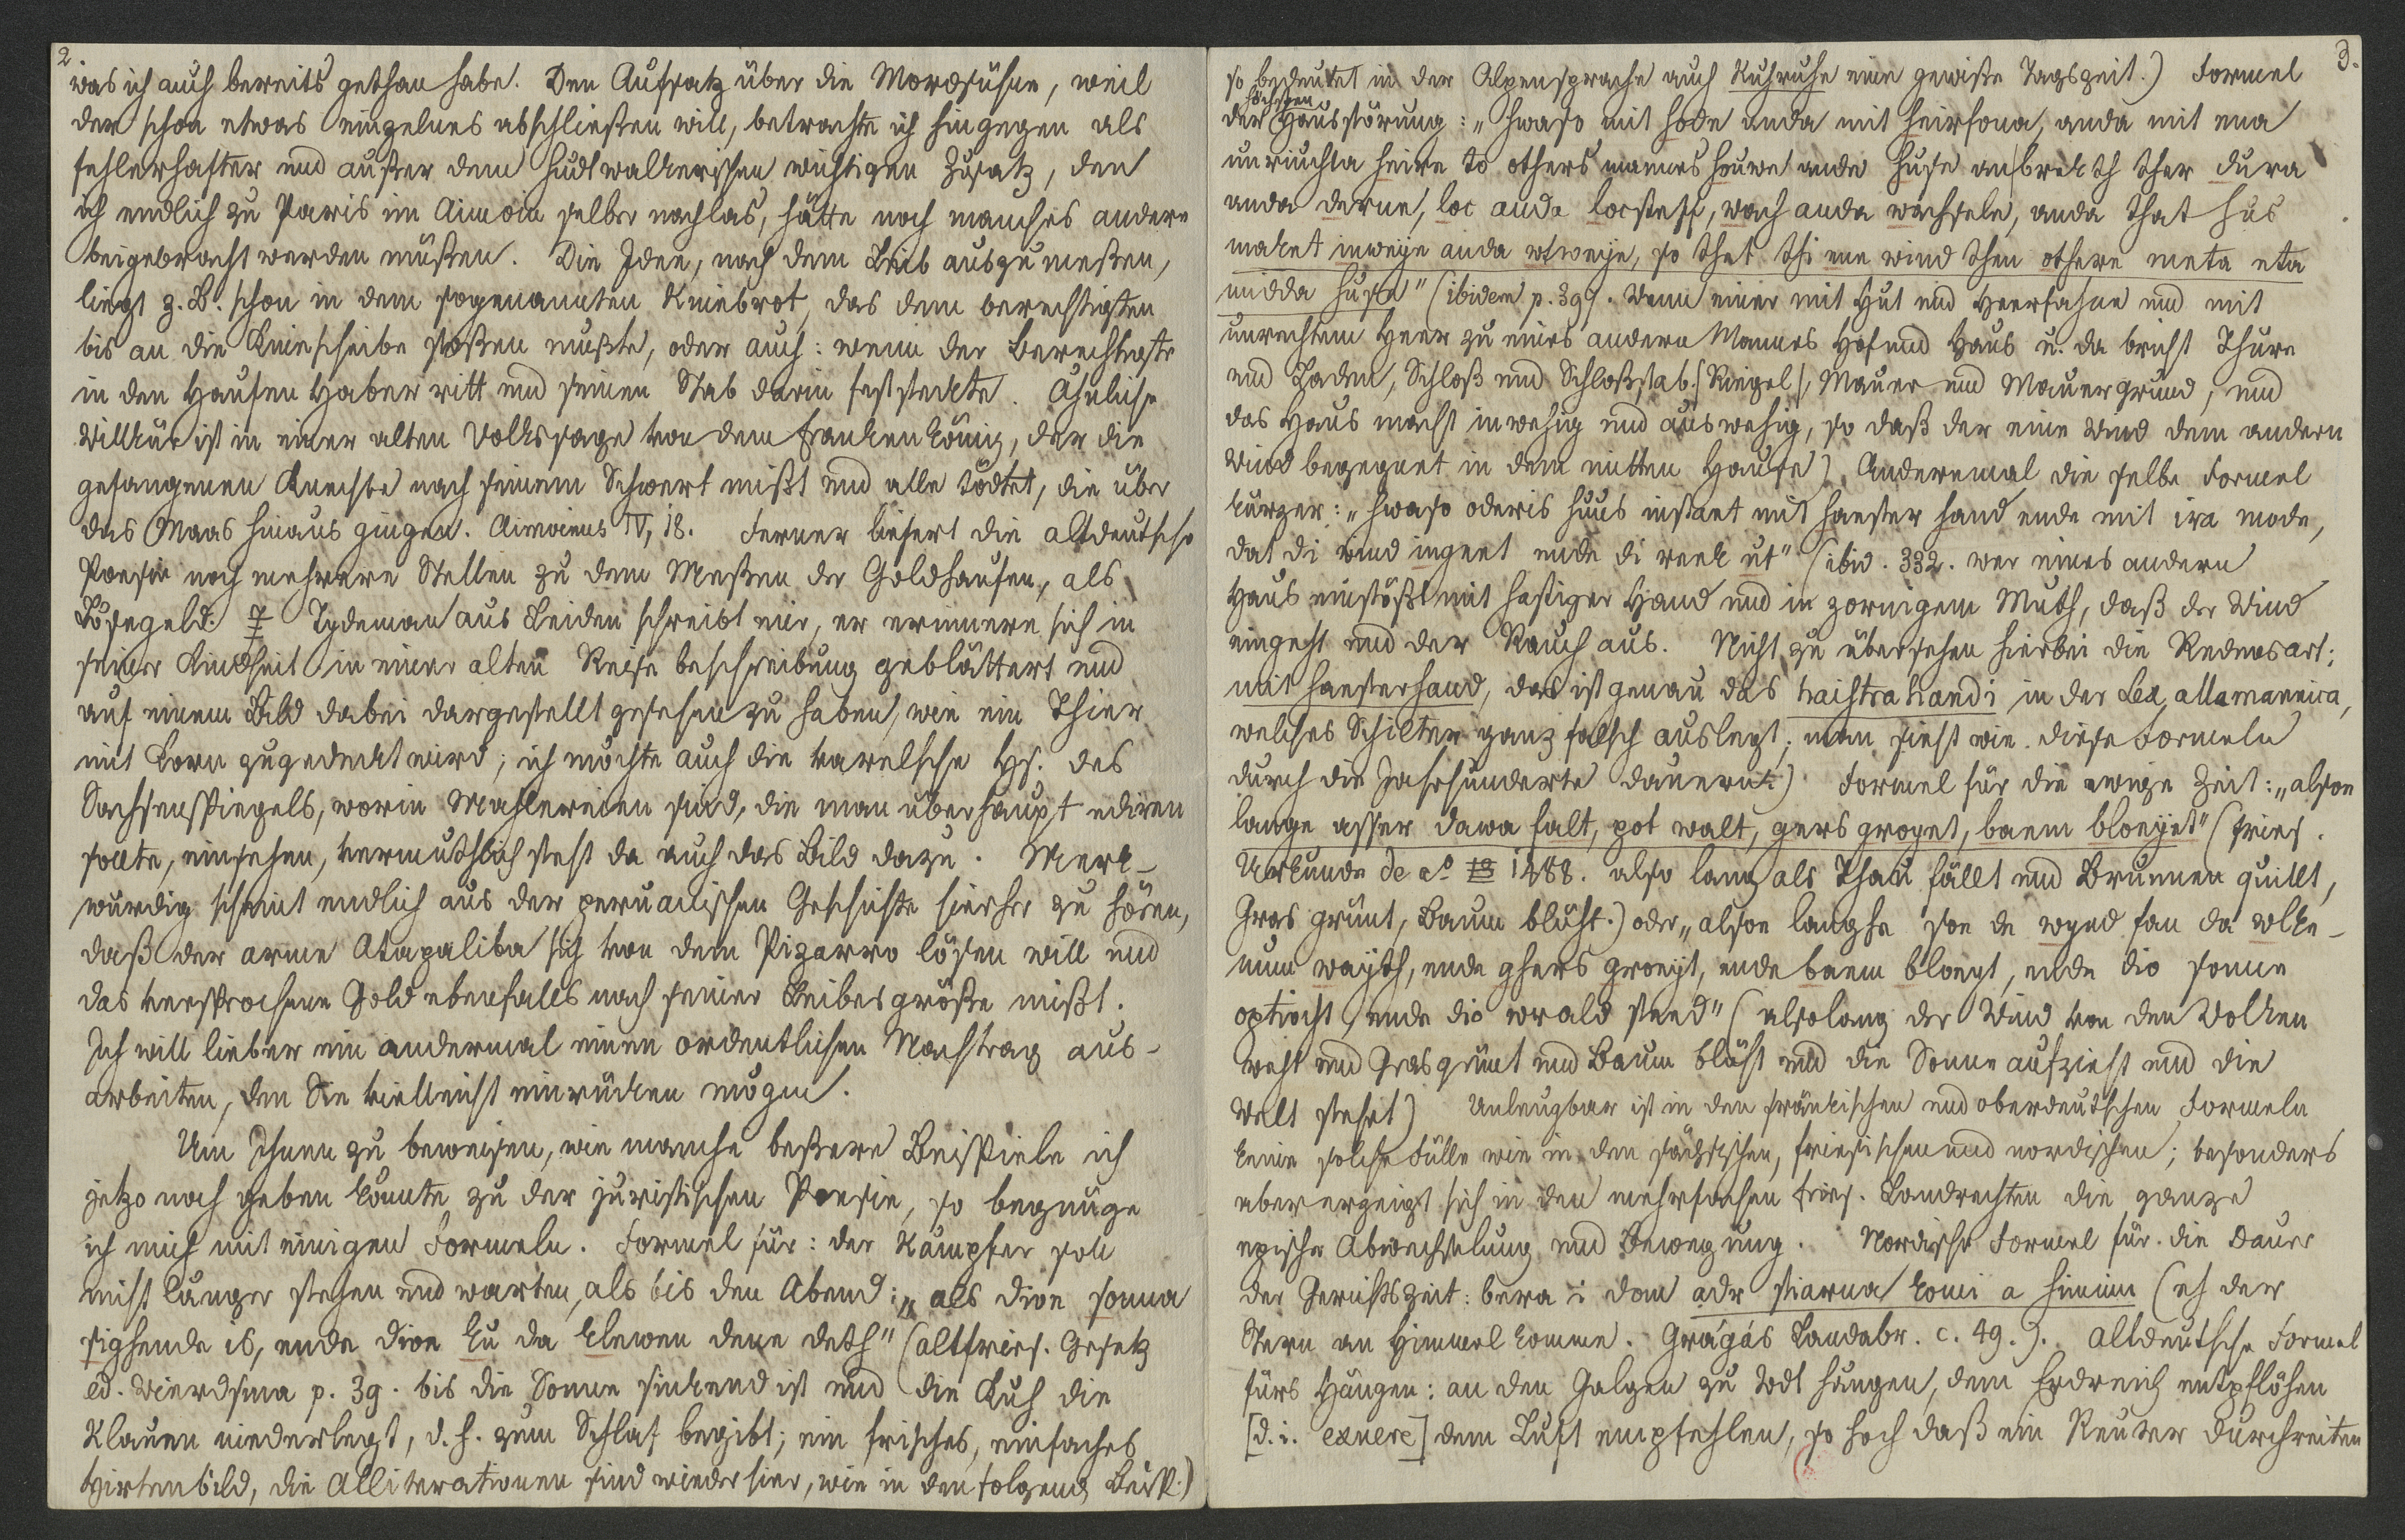 2
was ich auch bereits gethan habe. Den Aufsatz über die Mordsühne, weil
der schon etwas einzelnes abschließen will, betrachte ich hingegen als
fehlerhafter und außer dem hudtwalkerischen wichtigen Zusatz, den
ich endlich zu Paris im Aimoin selber nachlas, hätte noch manches andere
beigebracht werden müßen. Die Idee, nach dem Leib auszumeßen,
liegt z. B. schon in dem sogenannten Kniebrot, das dem berechtigten
bis an die Kniescheibe stoßen mußte, oder auch: wenn der Berechtigte
in den Haufen Haber ritt und seinen Stab darin feststeckte. Ähnliche
Willkür ist in einer alten Volkssage von dem Frankenkönig, der die
gefangenen Knechte nach seinem Schwert mißt und alle tödtet, die über
das Maas hinaus gingen. Aimoinus IV, 18. Ferner liefert die altdeutsche
Poesie noch mehrere Stellen zu dem Meßen der Goldhaufen, als
Lösegeld. Tydeman aus Leiden schreibt mir, er erinnere sich in
seiner Kindheit in einer alten Reisebeschreibung geblättert und
auf einem Bild dabei dargestellt gesehen zu haben, wie ein Thier
mit Korn zugedeckt wird; ich möchte auch die varelsche Hs. des
Sachsenspiegels, worin Mahlereien sind, die man überhaupt ediren
sollte, einsehen, vermuthlich steht da auch das Bild dazu. Merk-
würdig scheint endlich aus der peruanischen Geschichte hierher zu hören,
daß der arme Atapaliba sich von dem Pizarro lösen will und
das versprochene Gold ebenfalls nach seiner Leibesgröße mißt.
Ich will lieber ein andermal einen ordentlichen Nachtrag aus-
arbeiten, den Sie vielleicht einrücken mögen.
Um Ihnen zu beweisen, wie manche beßere Beispiele ich
jetzo noch geben könnte zu der juristischen Poesie, so begnüge
ich mich mit einigen Formeln. Formel für: der Kämpfer soll
nicht länger stehen und warten, als bis den Abend: „als dioe sonna
sighende is, ende dioe ku da klewen dene deth" (altfries. Gesetz
ed. Wierdsma p. 39. bis die Sonne sinkend ist und die Kuh die
Klauen niederlegt, d. h. zum Schlaf begibt; ein frisches, einfaches
Hirtenbild, die Alliterationen sind wieder hier, wie in den folgend. Beisp.)
3.
so bedeutet in der Alpensprache auch Kuhruhe eine gewiße Tagszeit.) Formel
höchsten
der Hausstörung: „hwaso mit hode anda mit heirfona, anda mit ena
unriuchta heire to others mannes houwe anda huse an brekth ther dura
anda derne, loc anda locsteff, wach anda wachsele, anda that hus
maket inweye anda utweye, so thet thi ene wind then othere meta eta
midda huse" (ibidem p. 39. Wenn einer mit Hut und Heerfahne und mit
unrechtem Heer zu eines andern Mannes Hof und Haus u. da bricht Thüre
und Laden, Schloß und Schloßstab [Riegel], Mauer und Mauergrund, und
das Haus macht inwehig und auswehig, so daß der eine Wind dem andern
Wind begegnet in dem mitten Hause). Anderemal die selbe Formel
kürzer: „hwaso oderis huus instaet mit haester hand ende mit ira mode,
dat di wind ingeet ende di reek ut" (ibid. 332. wer eines andern
Haus einstößt mit hastiger Hand und in zornigem Muth, daß der Wind
eingeht und der Rauch aus. Nicht zu übersehen hierbei die Redensart:
mit haesterhand, das ist genau das haistrahandi in der Lex allamannica,
welches Schilter ganz falsch auslegt; man sieht wie diese Formeln
durch die Jahrhunderte dauern) Formel für die ewige Zeit: „alsoe
lange asser dawa falt, pot walt, gers groyet, baem bloeyet" (fries.
Urkunde de aº 1488. also lang als Thau fällt und Brunnen quillt,
Gras grünt, Baum blüht.) oder „alsoe langhe soe de wynd fan da wlke-
num wayth, ende ghers groeyt, ende baem bloeyt, ende dio sonne
optiocht, ende dio wrald steed" (alsolang der Wind von den Wolken
weht und Gras grünt und Baum blüht und die Sonne aufzieht und die
Welt stehet) Unleugbar ist in den fränkischen und oberdeutschen Formeln
keine solche Fülle wie in den sächsischen, friesischen und nordischen; besonders
aber erzeigt sich in den mehrfachen fries. Landrechten die ganze
epische Abwechselung und Bewegung. Nordische Formel für die Dauer
der Gerichtszeit: bera i dom adr stiarna komi a himinn (eh der
Stern an Himmel komme. Grágás Landabr. c. 49.). Altdeutsche Formel
fürs Hängen: an den Galgen zu todt hängen, dem Erdreich entpflöhen
[d. i. exuere] dem Luft empfehlen, so hoch daß ein Reuter durchreiten